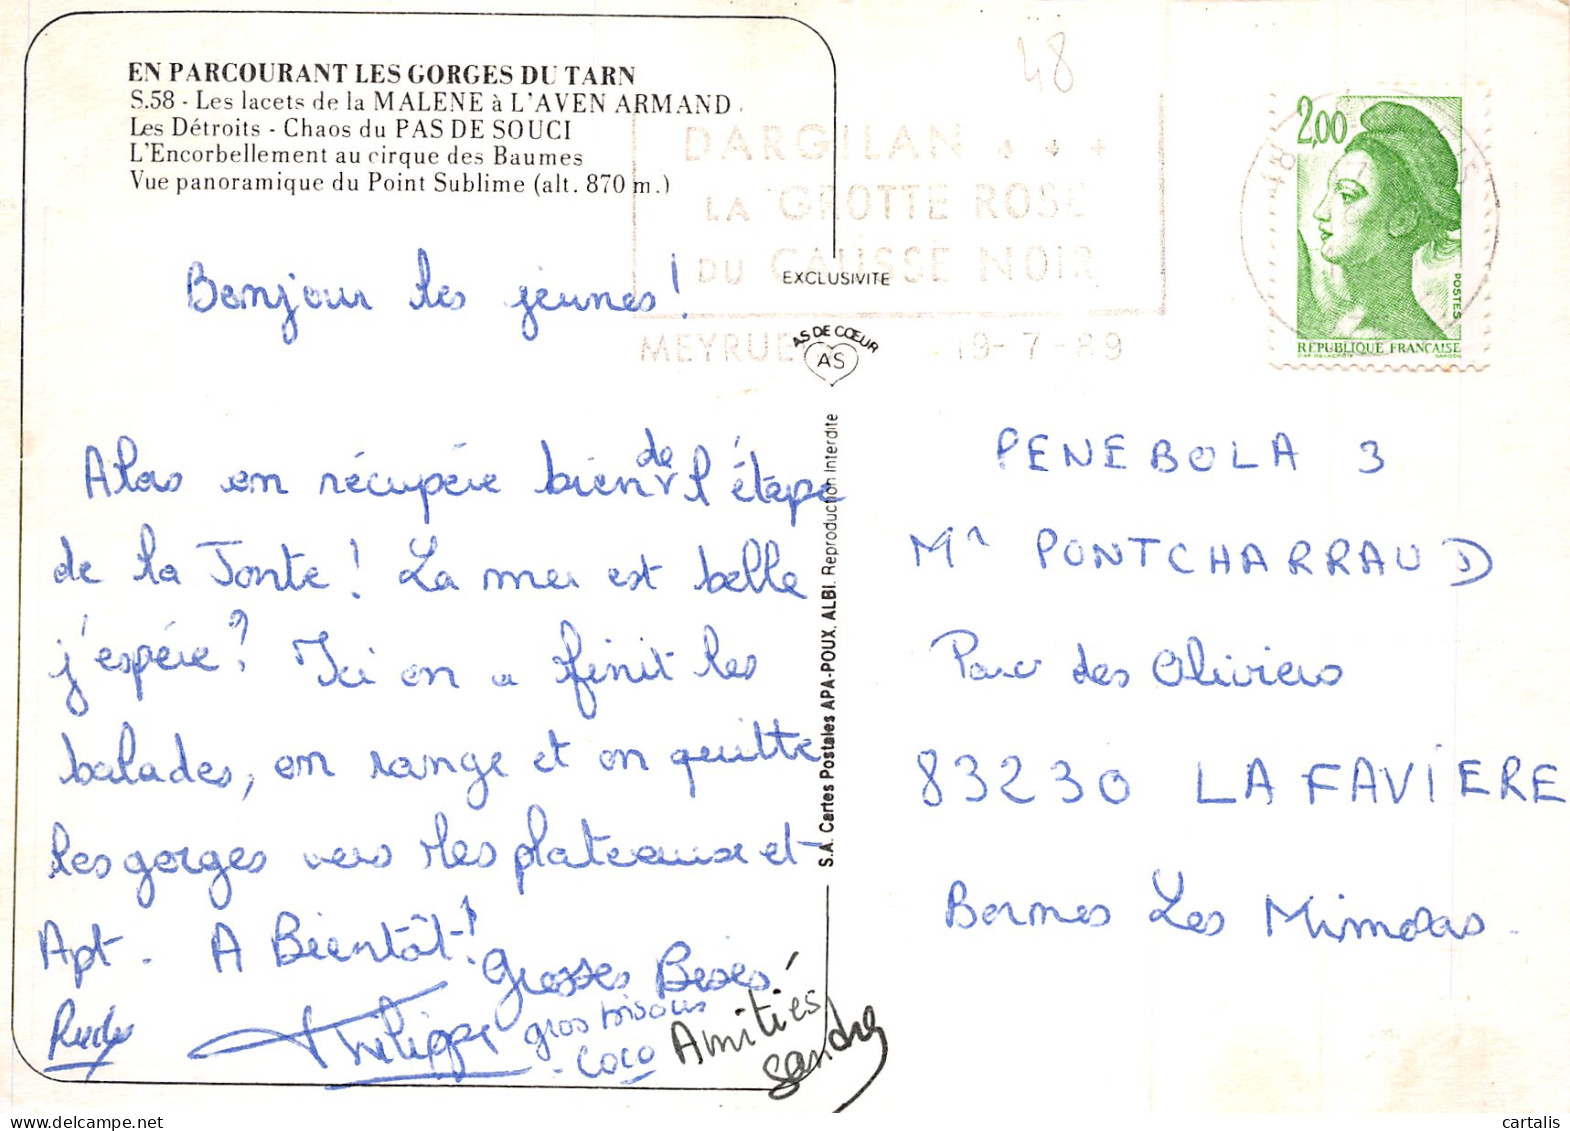 EN PARCOURANT LES GORGES DU TARN
S.58 - Les lacets de la MALENE à L'AVEN ARMAND
Les Détroits - Chaos du PAS DE SOUCI
L'Encorbellement au cirque des Baumes
Vue panoramique du Point Sublime (alt. 870 m.)
48
DARGILAN
LA GROTTE ROSE
DU CAUSSE NOIR
MEYRUE 19-7-89
2,00
POSTES
RÉPUBLIQUE FRANÇAISE
EXCLUSIVITE
AS DE CŒUR
AS
S.A. Cartes Postales APA-POUX. ALBI. Reproduction interdite
Bonjour les jeunes!
Alors on récupère bien de l'étape
de la Jonte! La mer est belle
j'espère? Ici on a finit les
balades, on range et on quitte
les gorges vers les plateaux et
Apt. A Bientôt!
Grosses Bises
Rudy
Philippe
gros bisous
COCO
Amitiés
Sandra
PENEBOLA 3
Mr PONTCHARRAUD
Parc des Oliviers
83230 LA FAVIERE
Bormes Les Mimosas.
cartalis